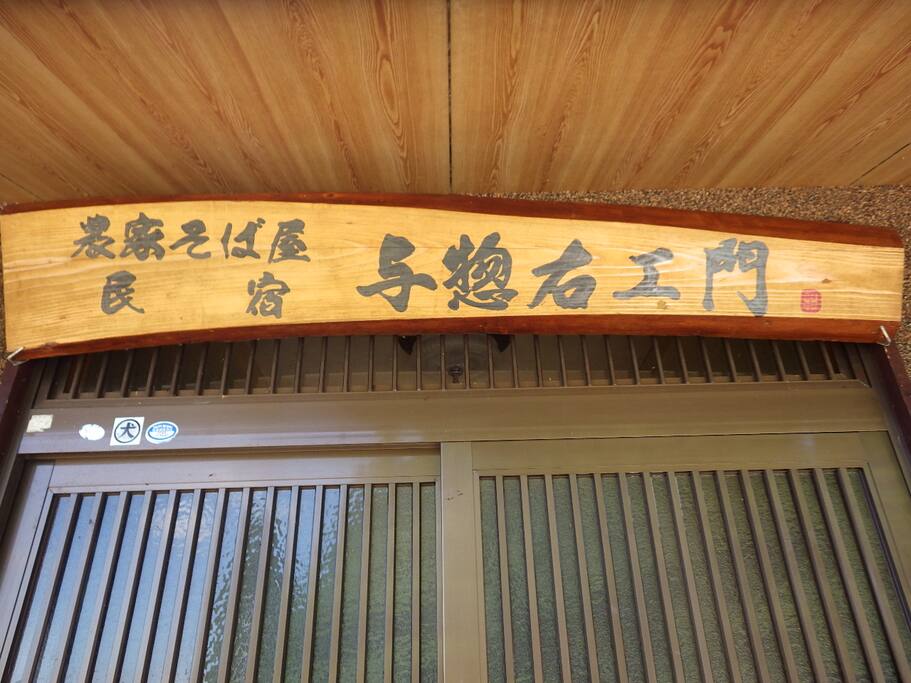 農家そば屋
民宿
与惣右エ門
犬